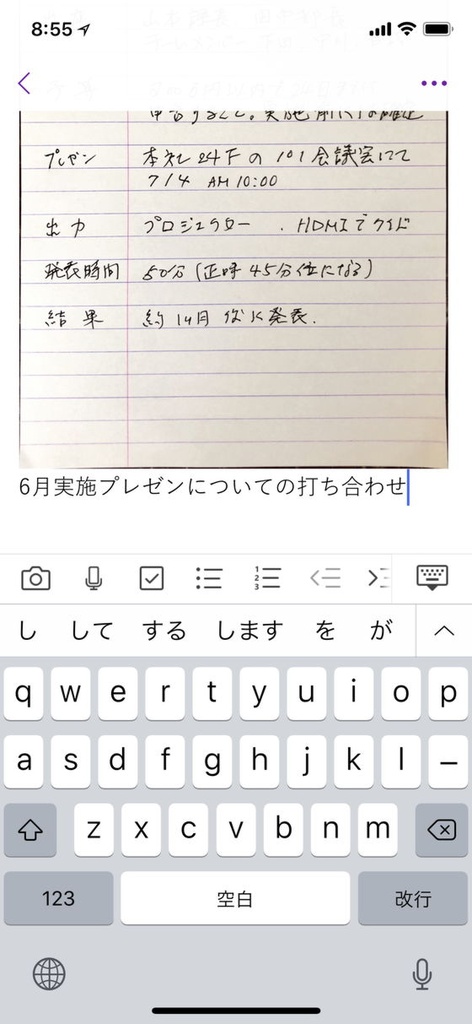 8:55
プレゼン 本社24Fの101会議室にて
7/4 AM10:00
出力 プロジェクター . HDMIでワイド
発表時間 50分(正味45分位になる)
結果 約1ヶ月後に発表.
6月実施プレゼンについての打ち合わせ
し して する します を が
q w e r t y u i o p
a s d f g h j k l ー
z x c v b n m
123 空白 改行